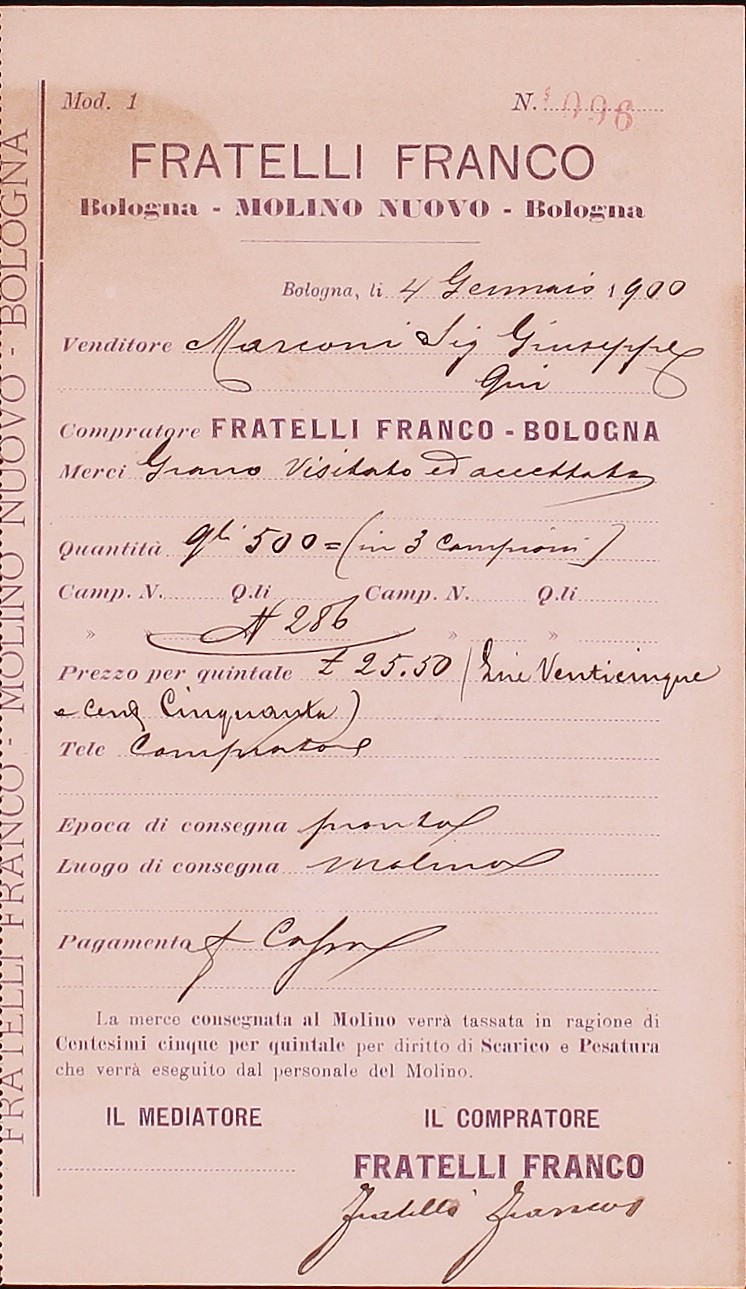 Mod. 1 N. 996
FRATELLI FRANCO
Bologna - MOLINO NUOVO - Bologna
Bologna, li 4 Gennaio 1900
Venditore Marconi Sig Giuseppe
Qui
Compratore FRATELLI FRANCO - BOLOGNA
Merci Grano Visitato ed accettato
Quantità qli 500 = (in 3 campioni)
Camp. N. Q.li Camp. N. Q.li
» » N 286 » »
Prezzo per quintale £ 25.50 (Lire Venticinque
e cent Cinquanta)
Tele Compratore
Epoca di consegna pronta
Luogo di consegna Molino
Pagamento Cassa
La merce consegnata al Molino verrà tassata in ragione di
Centesimi cinque per quintale per diritto di Scarico e Pesatura
che verrà eseguito dal personale del Molino.
IL MEDIATORE IL COMPRATORE
FRATELLI FRANCO
Fratelli Franco
FRATELLI FRANCO - MOLINO NUOVO - BOLOGNA